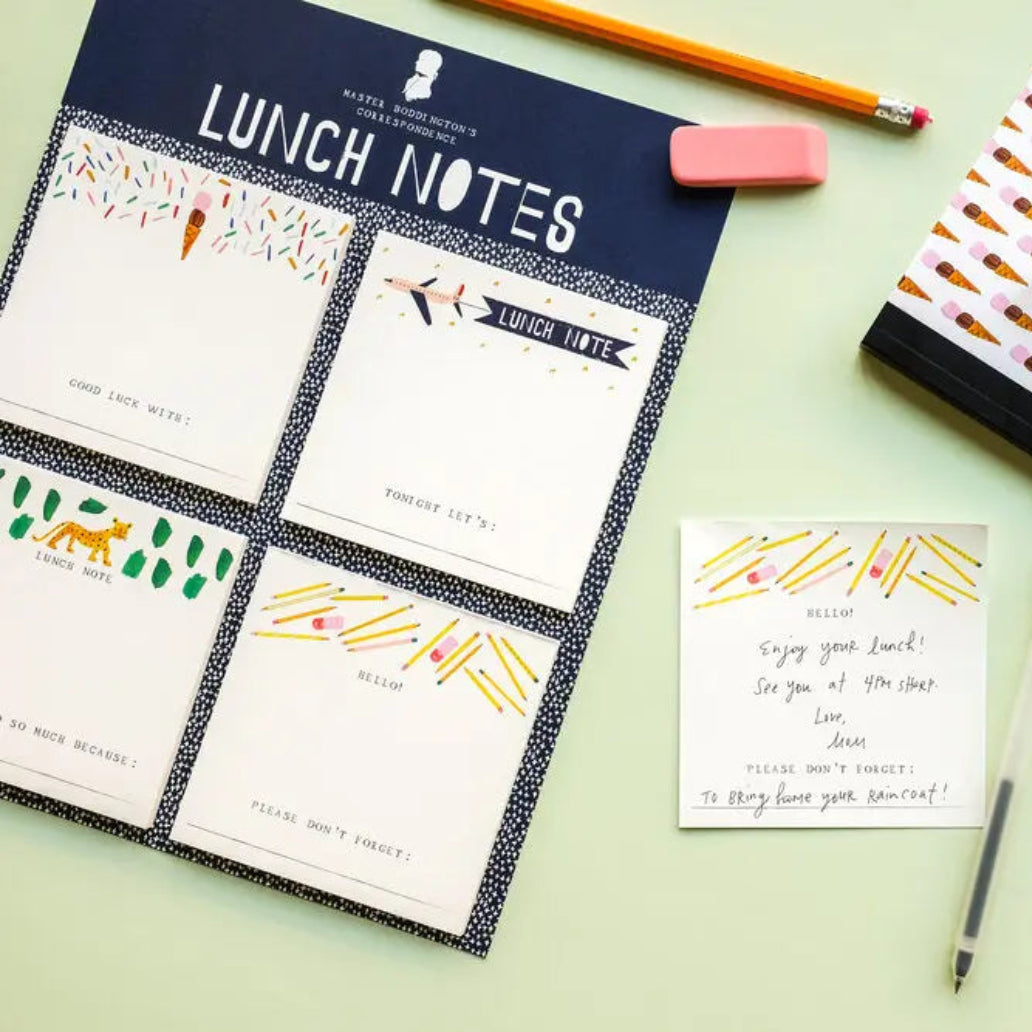 MASTER BODDINGTON'S
CORRESPONDENCE
LUNCH NOTES
GOOD LUCK WITH:
LUNCH NOTE
TONIGHT LET'S:
LUNCH NOTE
SO MUCH BECAUSE:
HELLO!
PLEASE DON'T FORGET:
HELLO!
Enjoy your lunch!
See you at 4PM SHARP.
Love,
Mom
PLEASE DON'T FORGET:
TO Bring home your Raincoat!